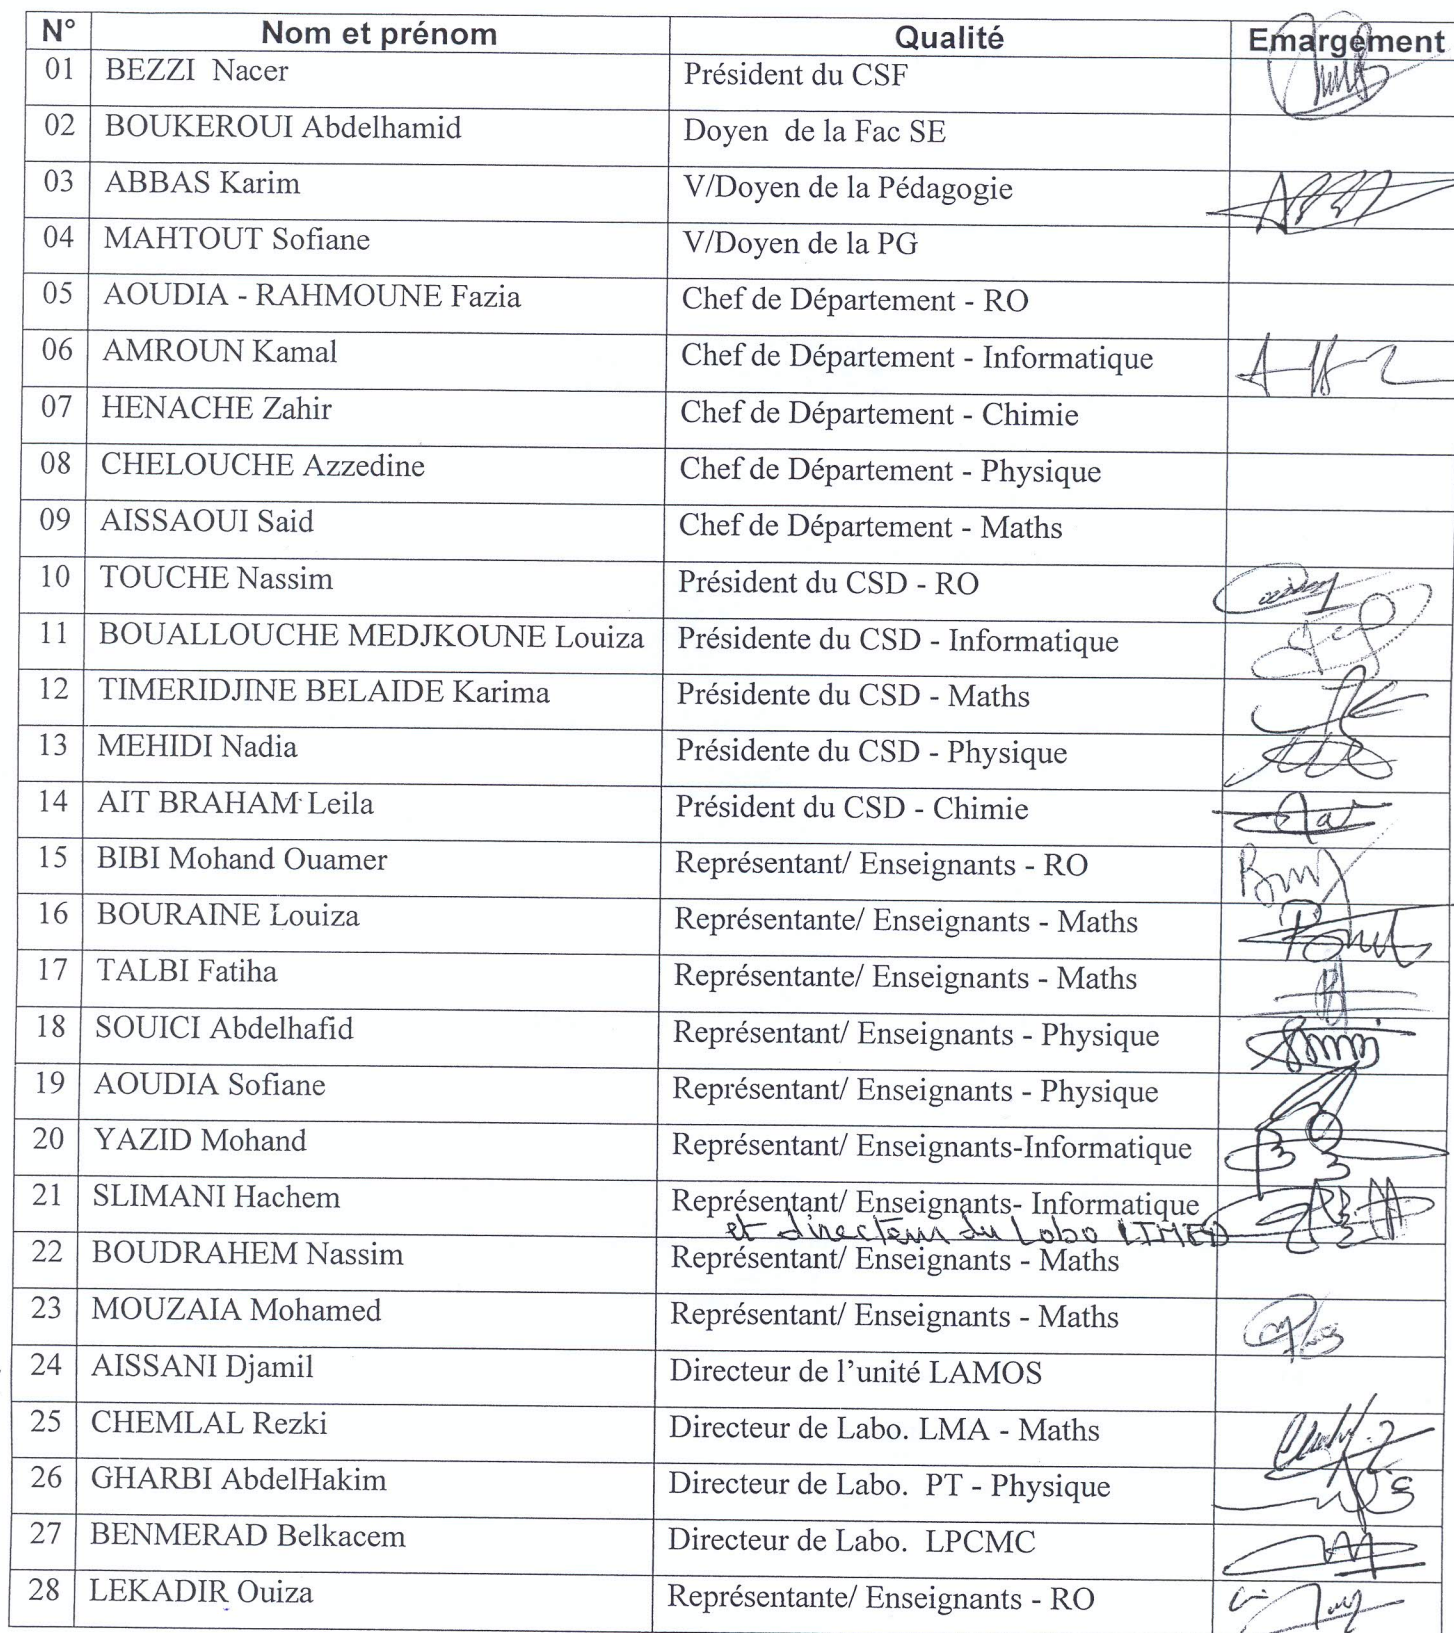 N° Nom et prénom Qualité Emargement
01 BEZZI Nacer Président du CSF
02 BOUKEROUI Abdelhamid Doyen de la Fac SE
03 ABBAS Karim V/Doyen de la Pédagogie
04 MAHTOUT Sofiane V/Doyen de la PG
05 AOUDIA - RAHMOUNE Fazia Chef de Département - RO
06 AMROUN Kamal Chef de Département - Informatique
07 HENACHE Zahir Chef de Département - Chimie
08 CHELOUCHE Azzedine Chef de Département - Physique
09 AISSAOUI Said Chef de Département - Maths
10 TOUCHE Nassim Président du CSD - RO
11 BOUALLOUCHE MEDJKOUNE Louiza Présidente du CSD - Informatique
12 TIMERIDJINE BELAIDE Karima Présidente du CSD - Maths
13 MEHIDI Nadia Présidente du CSD - Physique
14 AIT BRAHAM Leila Président du CSD - Chimie
15 BIBI Mohand Ouamer Représentant/ Enseignants - RO
16 BOURAINE Louiza Représentante/ Enseignants - Maths
17 TALBI Fatiha Représentante/ Enseignants - Maths
18 SOUICI Abdelhafid Représentant/ Enseignants - Physique
19 AOUDIA Sofiane Représentant/ Enseignants - Physique
20 YAZID Mohand Représentant/ Enseignants-Informatique
21 SLIMANI Hachem Représentant/ Enseignants- Informatique
et directeur du Labo LIMED
22 BOUDRAHEM Nassim Représentant/ Enseignants - Maths
23 MOUZAIA Mohamed Représentant/ Enseignants - Maths
24 AISSANI Djamil Directeur de l'unité LAMOS
25 CHEMLAL Rezki Directeur de Labo. LMA - Maths
26 GHARBI AbdelHakim Directeur de Labo. PT - Physique
27 BENMERAD Belkacem Directeur de Labo. LPCMC
28 LEKADIR Ouiza Représentante/ Enseignants - RO